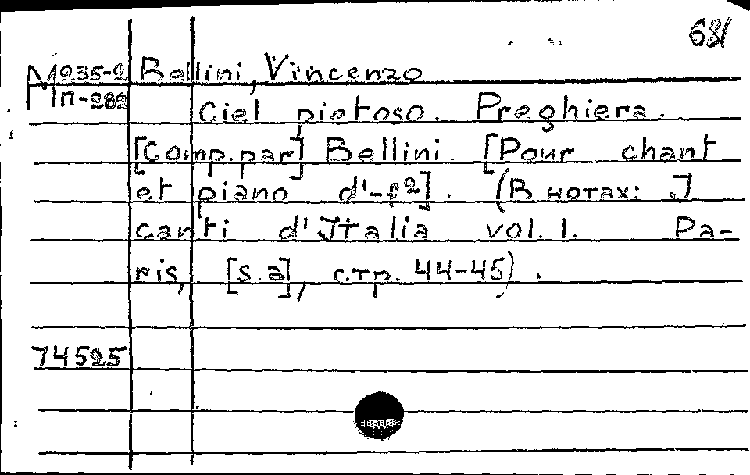 631
М235-2 Bellini, Vincenzo
П-282 Ciel pietoso. Preghiera.
[Comp. par] Bellini. [Pour chant
et piano d'-f²]. (В нотах: J
canti d'Jtalia vol. 1. Pa-
ris, [s.a], стр. 44-45).
74525